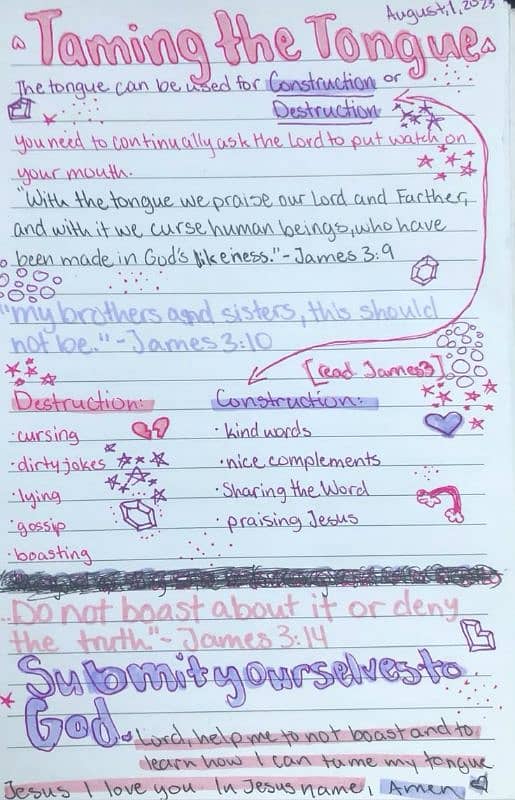 August, 1, 2023
Taming the Tongue
The tongue can be used for Construction or
Destruction
you need to continually ask the Lord to put watch on
your mouth.
"With the tongue we praise our Lord and Farther,
and with it we curse human beings, who have
been made in God's likeness."-James 3:9
"my brothers and sisters, this should
not be."-James 3:10
[read James3]
Destruction:
·cursing
·dirty jokes
·lying
·gossip
·boasting
Construction:
·kind words
·nice complements
·Sharing the Word
·praising Jesus
"Do not boast about it or deny
the truth"-James 3:14
Submit yourselves to
God.
Lord, help me to not boast and to
learn how I can tame my tongue
Jesus I love you. In Jesus name, Amen